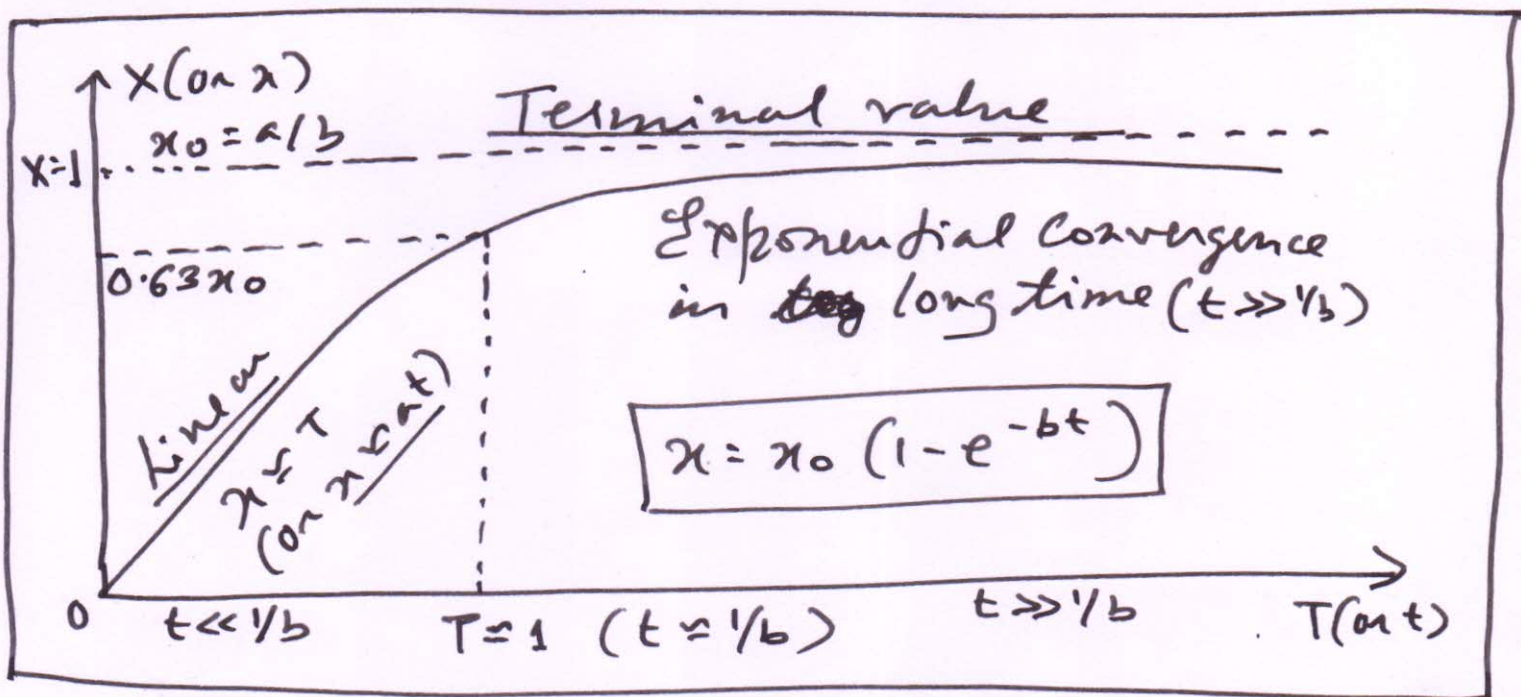 X(or x)
x₀ = a/b
Terminal value
X=1
0.63x₀
Exponential convergence
in long time (t >> 1/b)
Linear
X ≃ T
(or x ≃ at)
x = x₀ (1 - e^{-bt})
0
t << 1/b
T ≃ 1 (t ≃ 1/b)
t >> 1/b
T(or t)